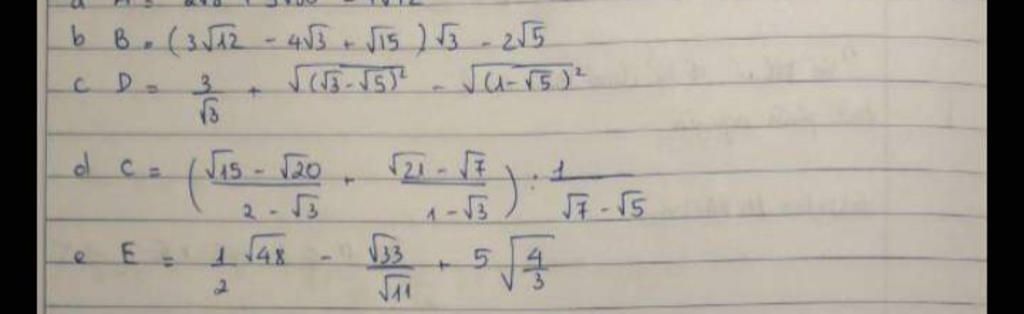 b B = (3√12 - 4√3 + √15)√3 - 2√5
c D = 3/√3 + √(√3-√5)² - √(1-√5)²
d C = (√15 - √20 / 2 - √3 + √21 - √7 / 1 - √3) : 1 / √7 - √5
e E = 1/2 √48 - √33/√11 + 5√4/3